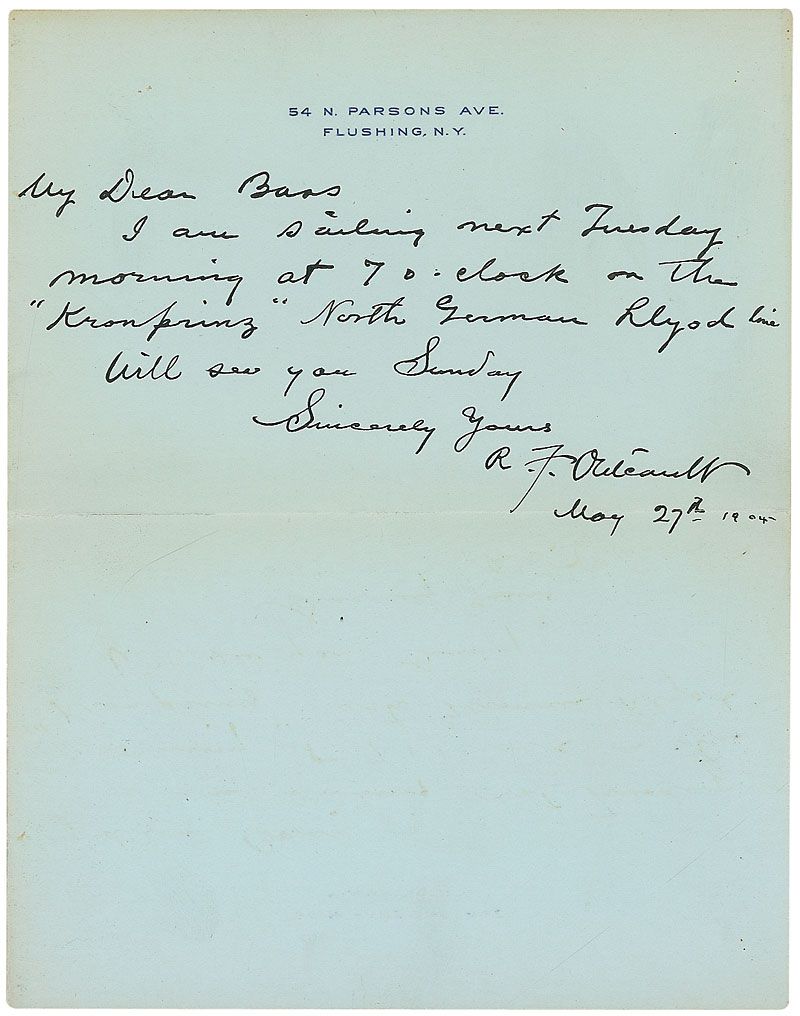 54 N. PARSONS AVE.
FLUSHING, N.Y.
My Dear
I am sailing next Tuesday
morning at 7 o.clock on the
"Kronprinz" North German Llyod line
Will see you Sunday
Sincerely Yours
R. F. Outcault
May 27th